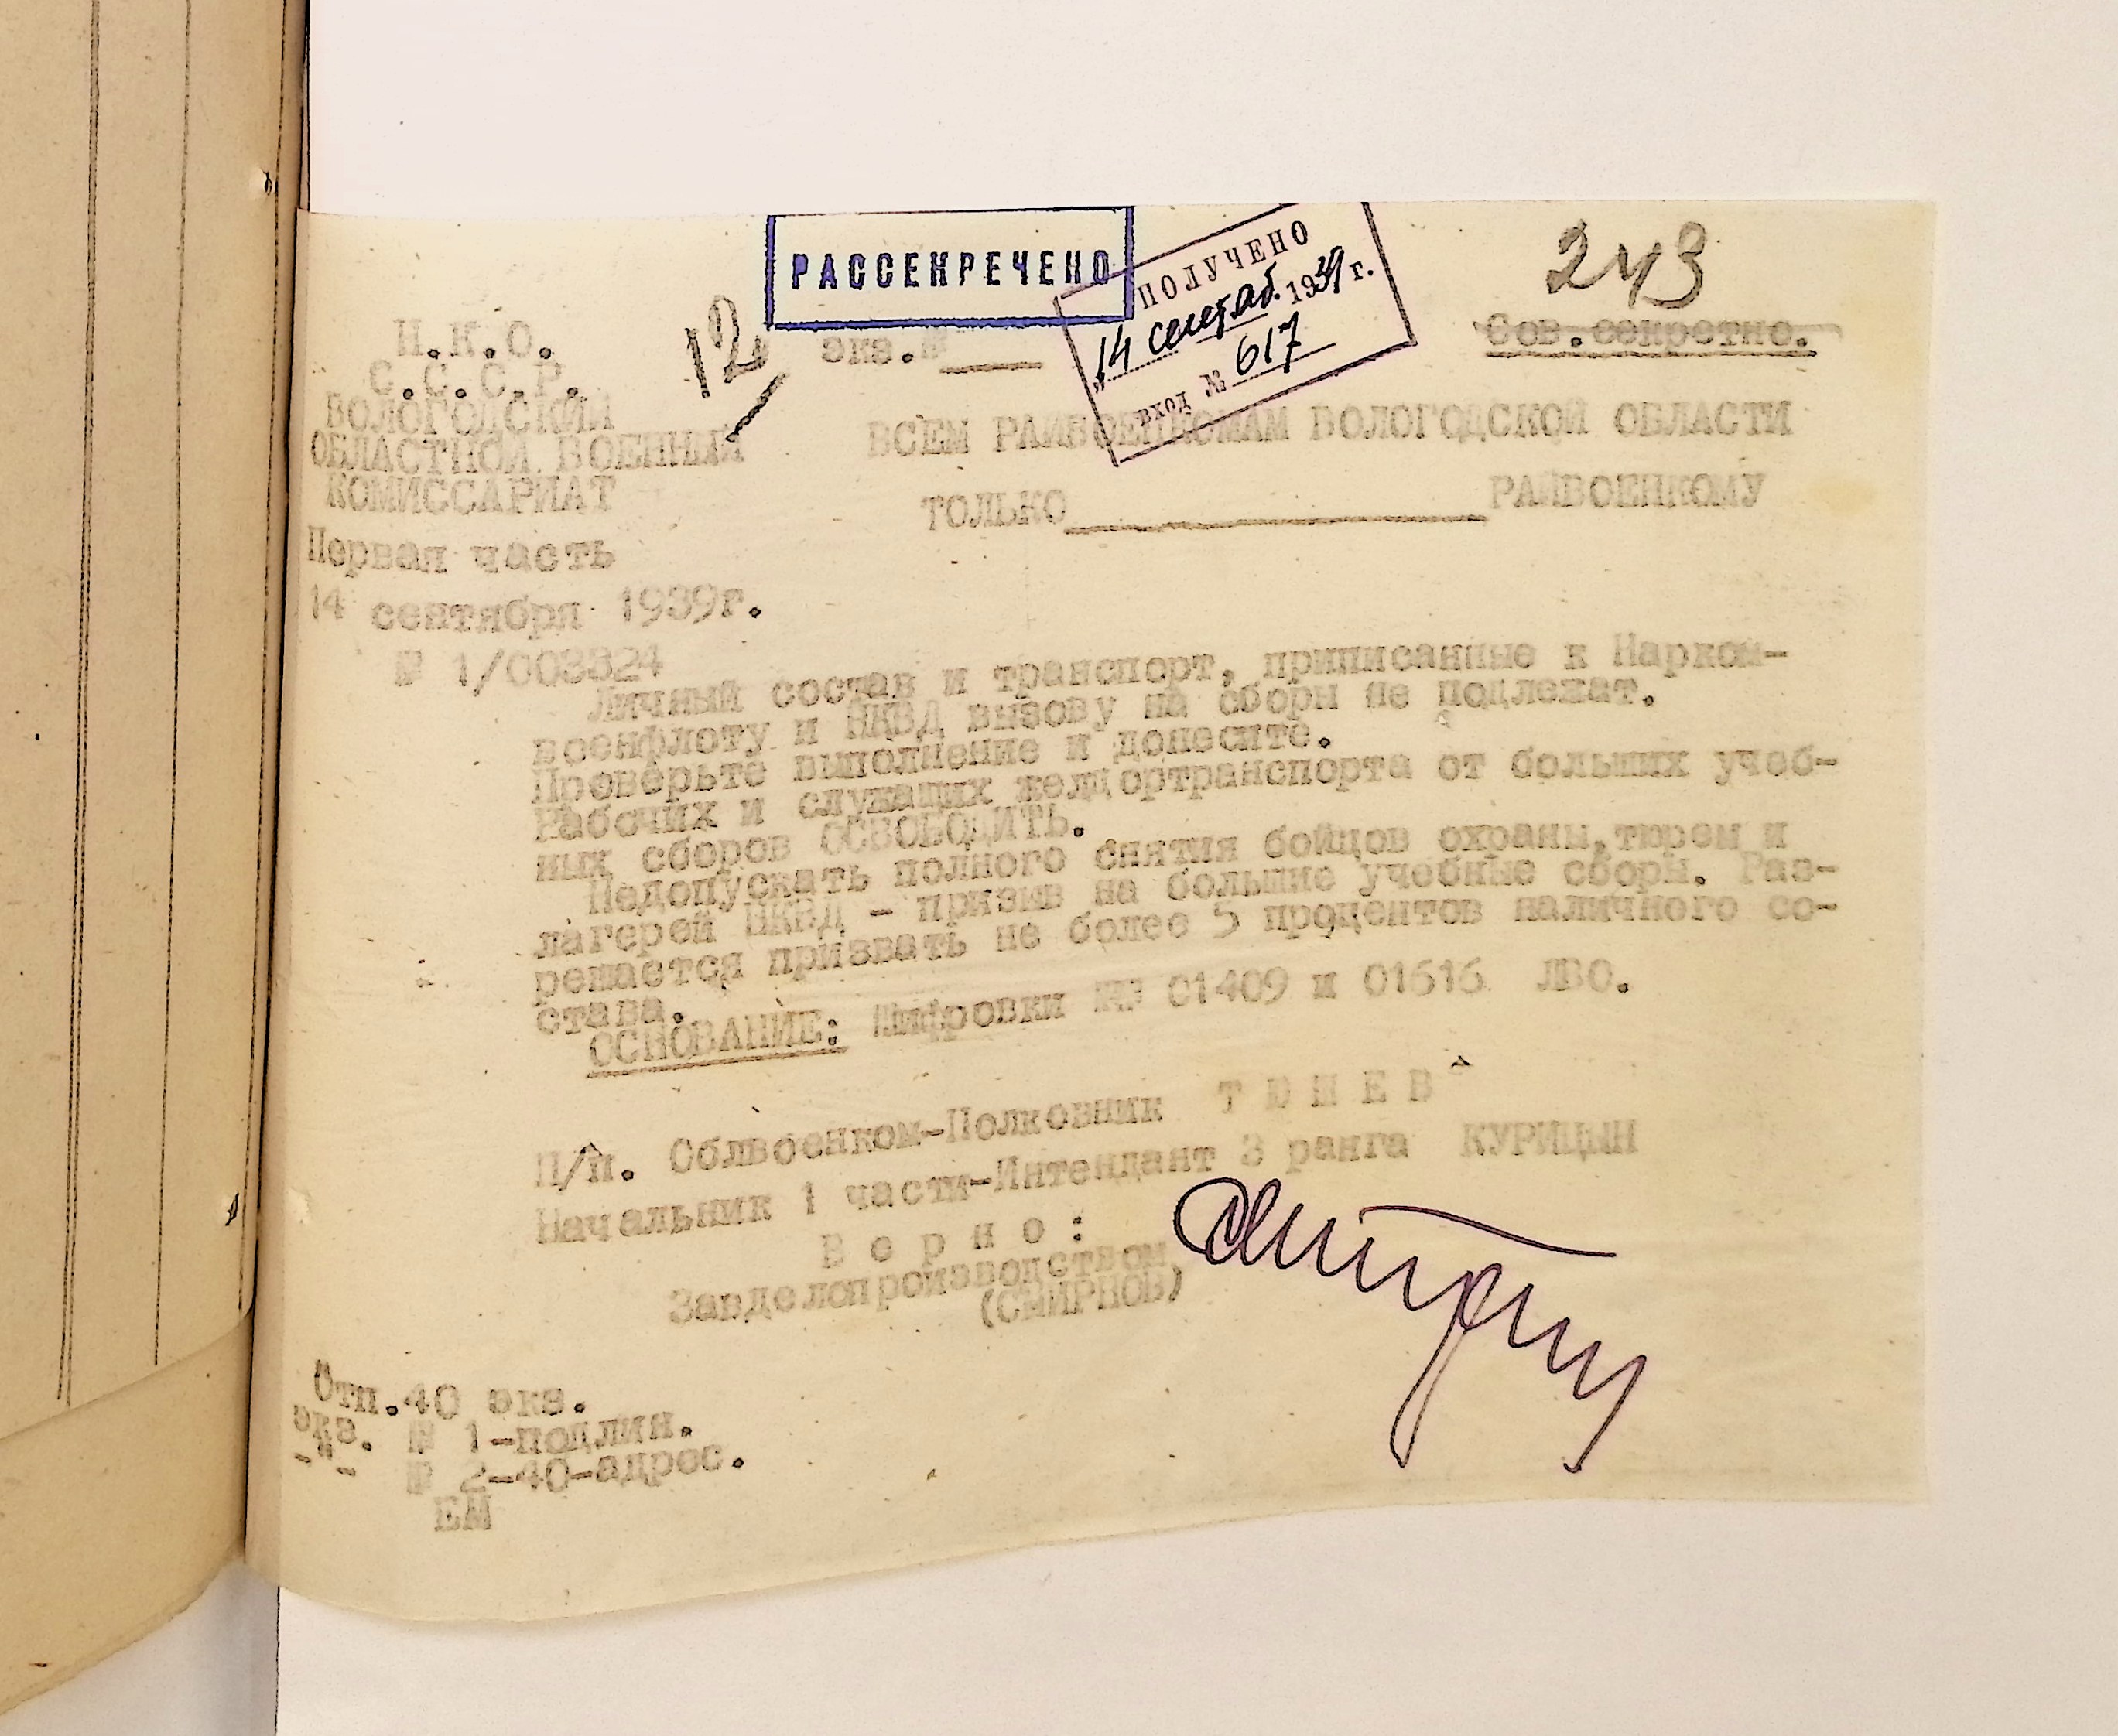 РАССЕКРЕЧЕНО
ПОЛУЧЕНО
"14 сентяб. 1939 г.
ВХОД № 617
243
Сов.секретно.
12
экз.№
Н.К.О.
С.С.С.Р.
ВОЛОГОДСКИЙ
ОБЛАСТНОЙ ВОЕННЫЙ
КОМИССАРИАТ
Первая часть
14 сентября 1939г.
№ 1/003324
ВСЕМ РАЙВОЕНКОМАМ ВОЛОГОДСКОЙ ОБЛАСТИ
ТОЛЬКО РАЙВОЕНКОМУ
Личный состав и транспорт, приписанные к Нарком-
военфлоту и НКВД вызову на сборы не подлежат.
Проверьте выполнение и донесите.
Рабочих и служащих желдортранспорта от больших учеб-
ных сборов ОСВОБОДИТЬ.
Недопускать полного снятия бойцов охраны,тюрем и
лагерей НКВД - призыв на большие учебные сборы. Раз-
решается призвать не более 5 процентов наличного со-
става.
ОСНОВАНИЕ: Шифровки №№ 01409 и 01616 ЛВО.
П/п. Облвоенком-Полковник
Начальник 1 части-Интендант 3 ранга КУРИЦЫН
Верно:
Завделопроизводством
(СМИРНОВ)
Отп.40 экз.
экз. № 1-подлин.
-"- № 2-40-адрес.
ЕМ